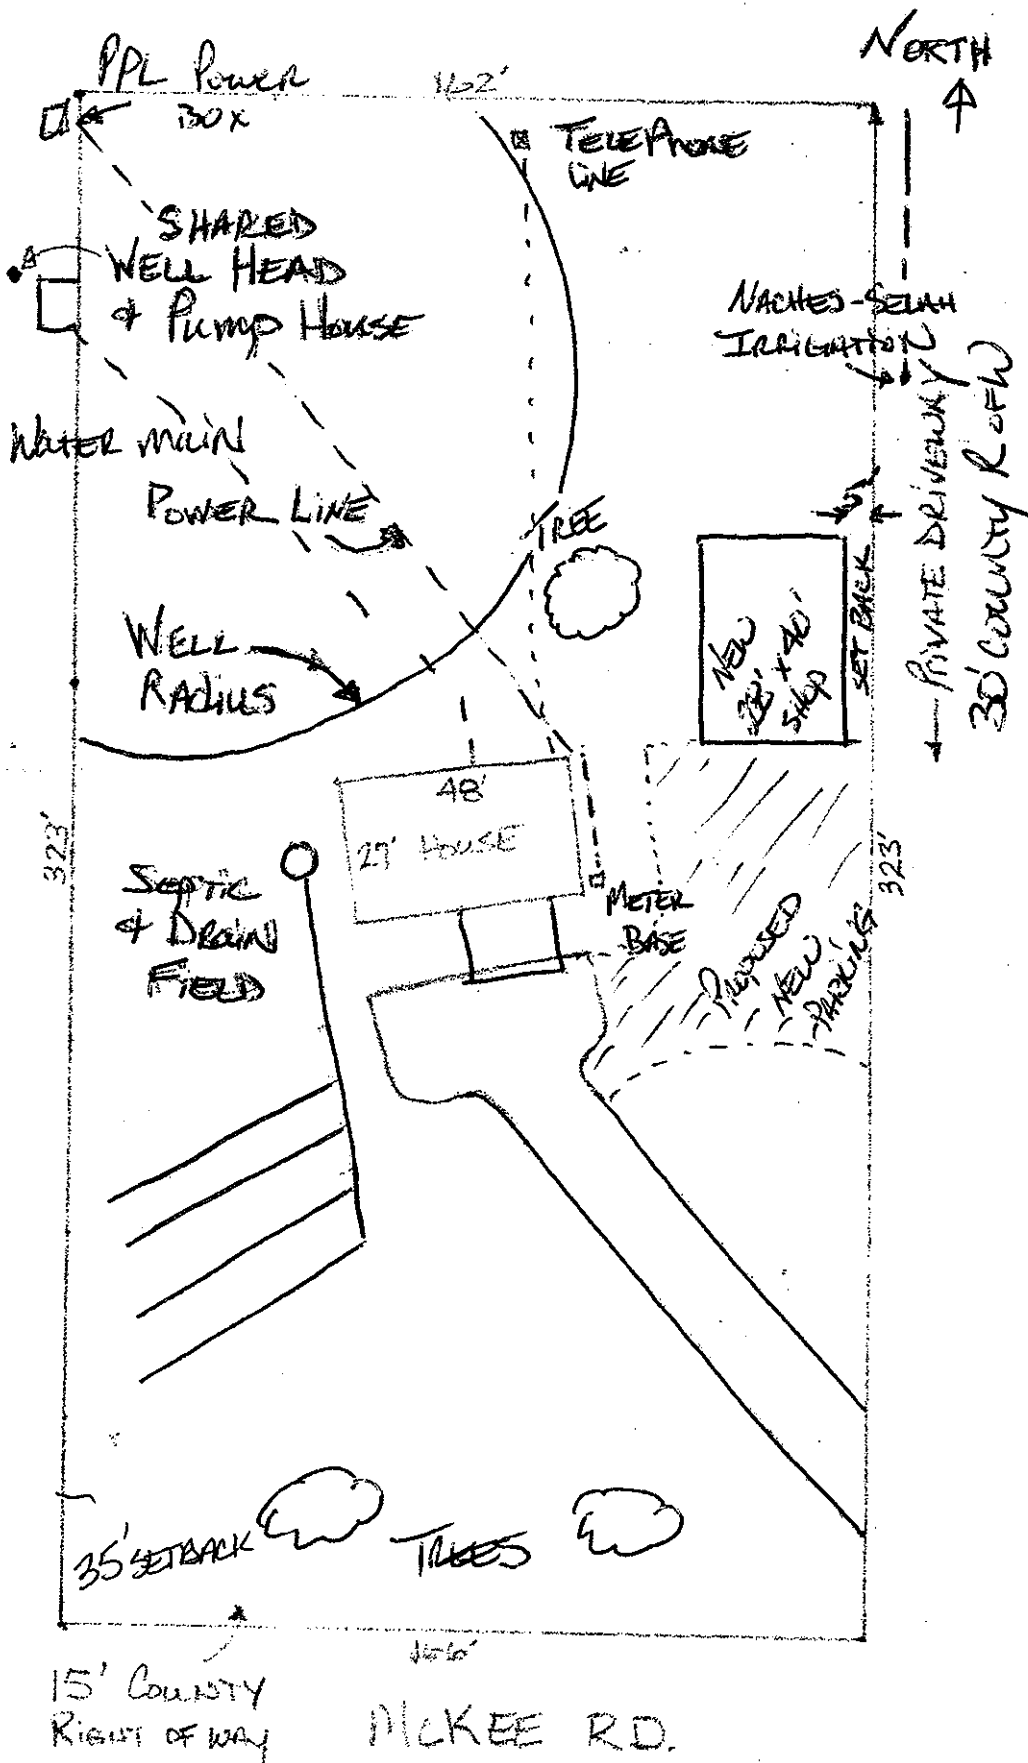 NORTH
PPL POWER
BOX
162'
TELEPHONE
LINE
SHARED
WELL HEAD
& PUMP HOUSE
NACHES-SELAH
IRRIGATION
WATER MAIN
POWER LINE
TREE
PRIVATE DRIVEWAY
30' COUNTY R OF W
WELL
RADIUS
NEW
28' x 40'
SHOP
SET BACK
48'
27' HOUSE
323'
323'
SEPTIC
& DRAIN
FIELD
METER
BASE
PROPOSED
NEW
PARKING
35' SETBACK
TREES
15' COUNTY
RIGHT OF WAY
MCKEE RD.